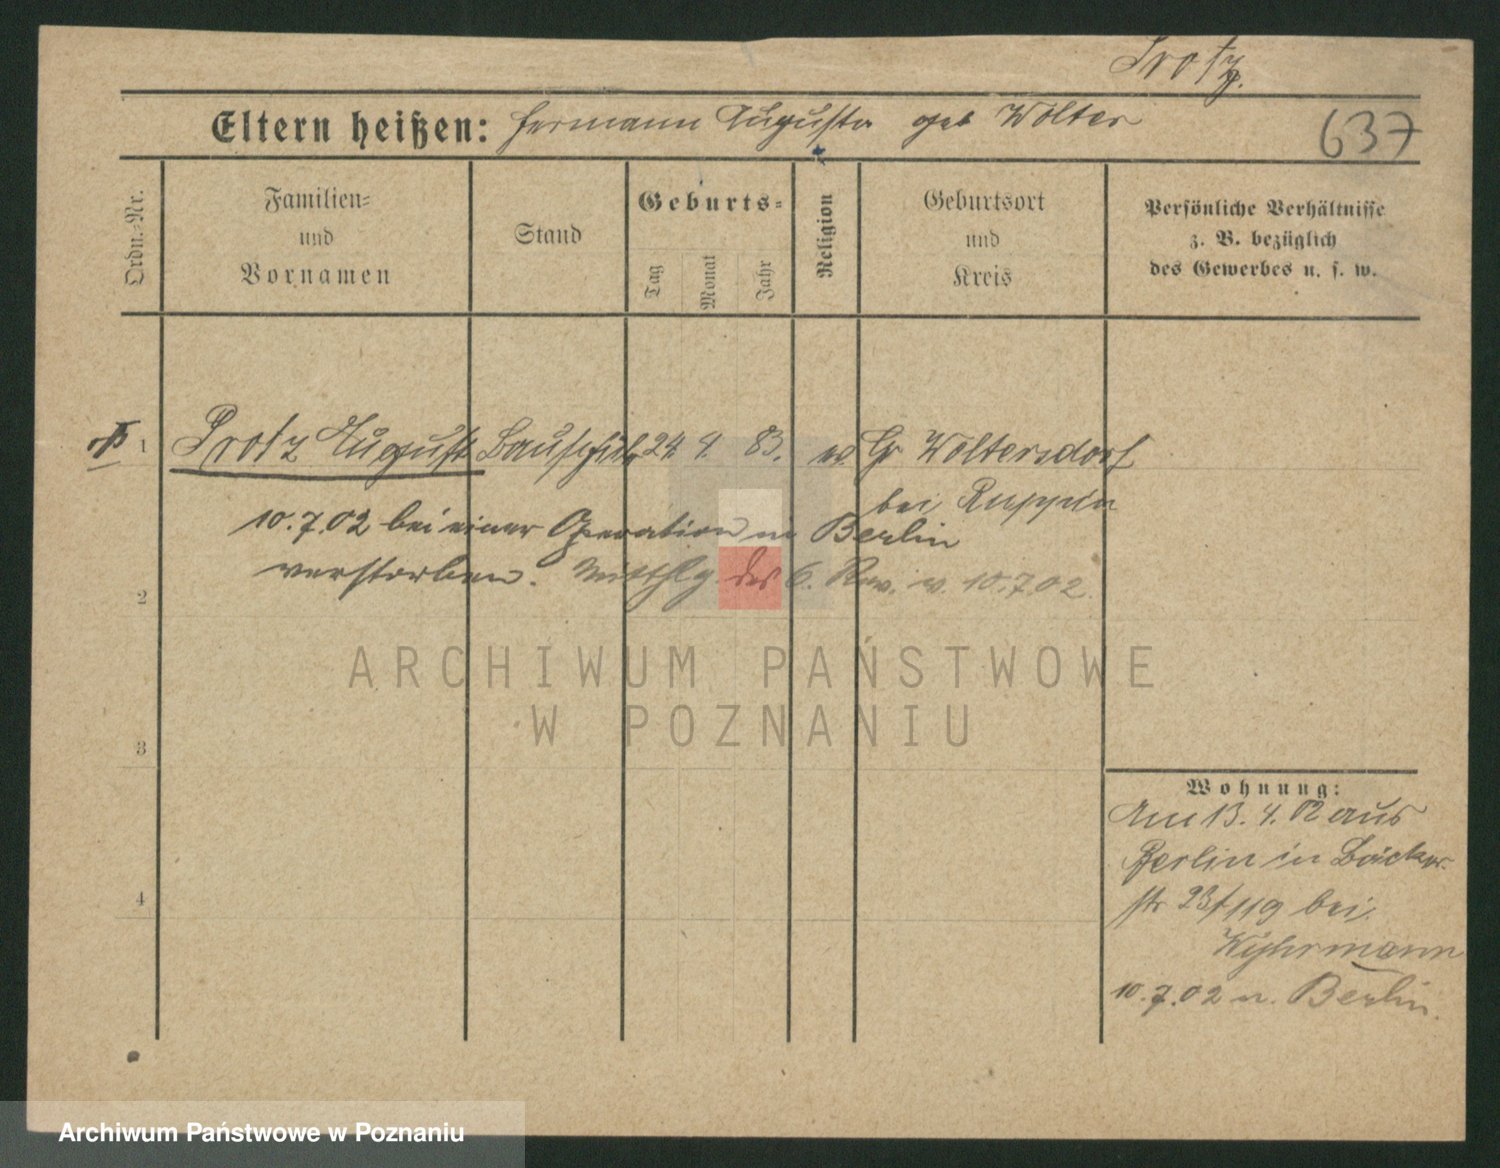 Protz.
Eltern heißen: Hermann Auguste geb Wolter
637
Ordn.-Nr.
Familien-
und
Vornamen
Stand
Geburts-
Tag
Monat
Jahr
Religion
Geburtsort
und
Kreis
Persönliche Verhältnisse
z. B. bezüglich
des Gewerbes u. s. w.
1 Protz August Bauschüler 24. 4. 83. ev. Gr Woltersdorf
bei Ruppin
10.7.02 bei einer Operation in Berlin
verstorben. Mitthlg. des 6. Rev. v. 10.7.02.
2
ARCHIWUM PAŃSTWOWE
W POZNANIU
3
4
Wohnung:
Am 13. 4. 02 aus
Berlin in Bäcker-
str 23/119 bei
10.7.02 n. Berlin.
Archiwum Państwowe w Poznaniu